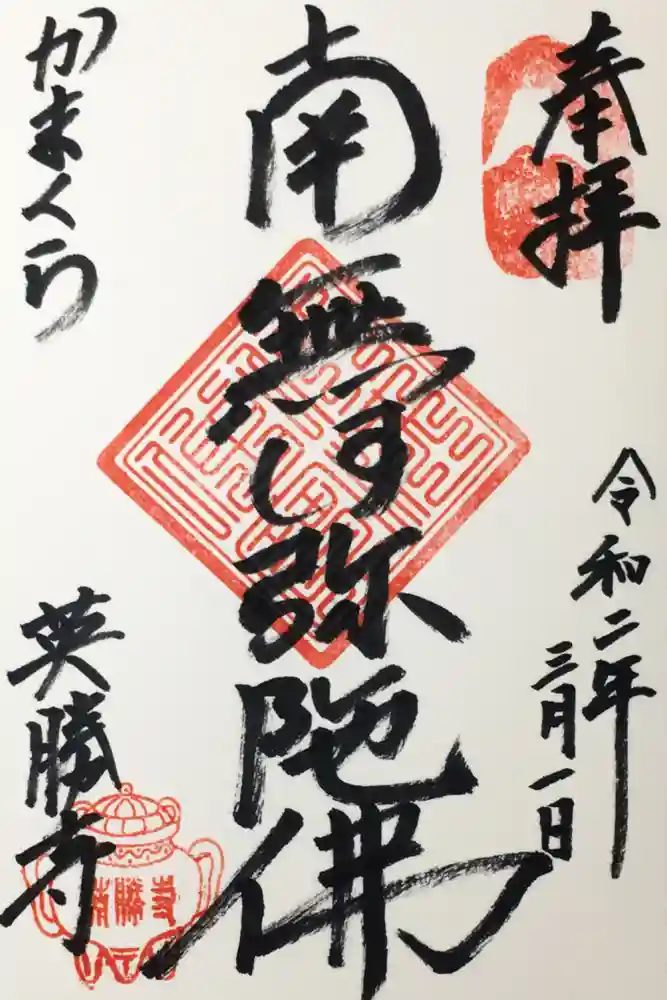 奉拝
令和二年
三月一日
南無阿弥陀佛
かまくら
英勝寺